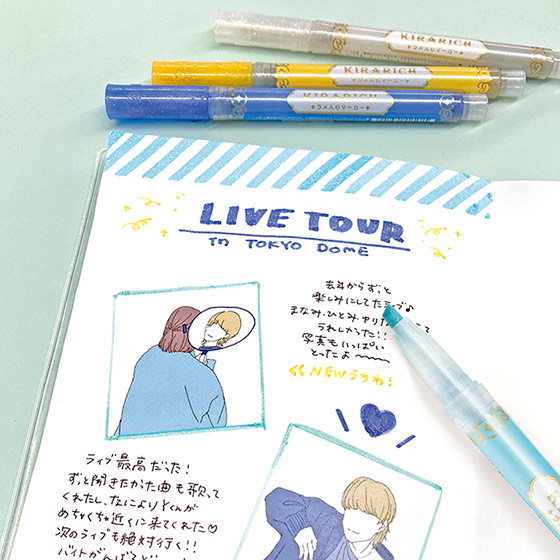 KIRARICH
✦ラメ入りマーカー✦
KIRARICH
✦ラメ入りマーカー✦
KIRARICH
✦ラメ入りマーカー✦
LIVE TOUR
In TOKYO DOME
去年からずっと
楽しみにしてたライブ♪
まなみ・ひとみ・ゆりな
って
うれしかった!!
写真もいっぱい
とったよ〜
<<NEWうちわ!
ライブ最高だった!
ずっと聞きたかった曲も歌って
くれたし、なによりとくんが
めちゃくちゃ近くに来てくれた♡
次のライブも絶対行く!!
バイトがんばる